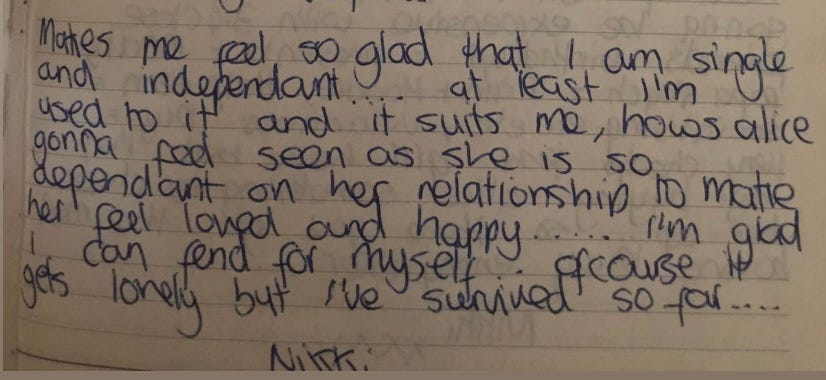 Makes me feel so glad that I am single
and independant.... at least I'm
used to it and it suits me, hows alice
gonna feel seen as she is so
dependant on her relationship to make
her feel loved and happy...... I'm glad
I can fend for myself... ofcouse it
gets lonely but I've survived so far....
Nikki